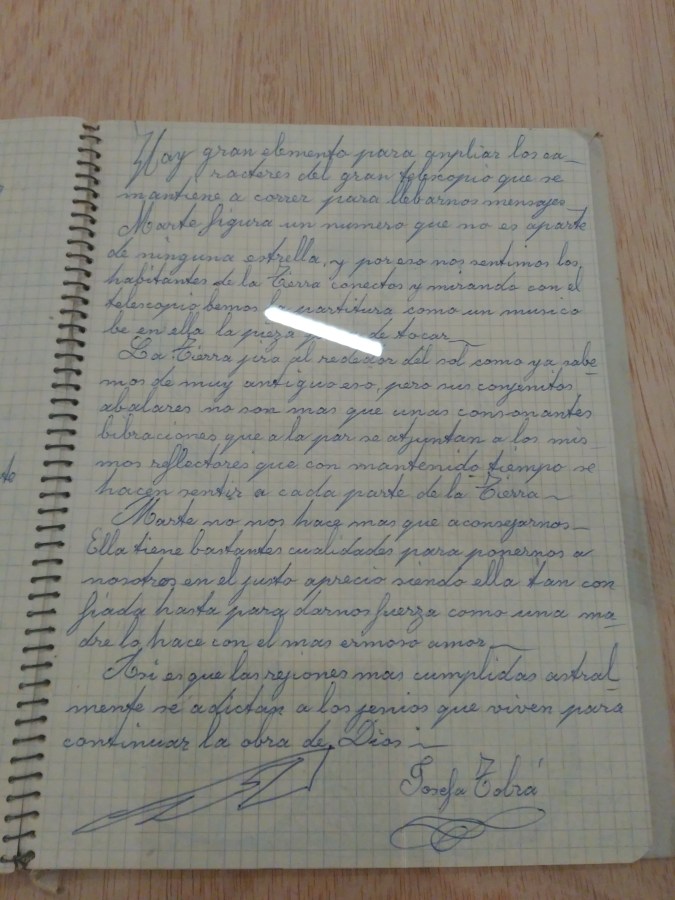 Hay gran elemento para anpliar los ca_
racteres del gran telescopio que se
mantiene a correr para llebarnos mensajes_
Marte figura un numero que no es aparte
de ninguna estrella, y por eso nos sentimos los
habitantes de la Tierra conectos y mirando con el
telescopio bemos la partitura como un musico
be en ella la pieza de tocar_
La Tierra jira al rededor del sol como ya sabe_
mos de muy antiguo eso, pero sus conjenitos
abalares no son mas que unas consonantes
bibraciones que a la par se atjuntan a los mis_
mos reflectores que con mantenido tiempo se
hacen sentir a cada parte de la Tierra_
Marte no nos hace mas que aconsejarnos_
Ella tiene bastantes cualidades para ponernos a
nosotros en el justo aprecio siendo ella tan con
fiada hasta para darnos fuerza como una ma_
dre lo hace con el mas ermoso amor_
Asi es que las rejiones mas cumplidas astral_
mente se adictan a los jenios que viven para
continuar la obra de Dios_
Josefa Tolrá